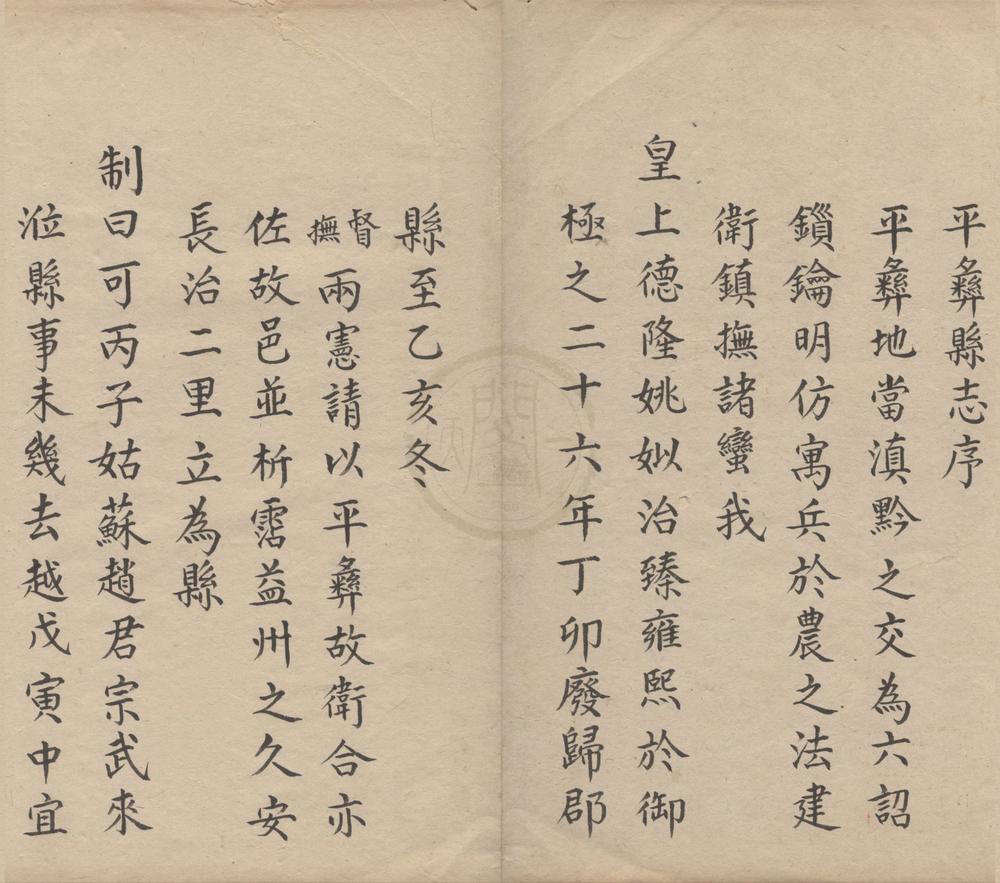 平彝縣志序
平彝地當滇黔之交為六詔
鎻鑰明仿寓兵於農之法建
衛鎮撫諸蠻我
皇上德隆姚姒治臻雍熙於御
極之二十六年丁卯廢歸郡
縣至乙亥冬
督撫兩憲請以平彝故衛合亦
佐故邑並析霑益州之久安
長治二里立為縣
制曰可丙子姑蘇趙君宗武來
涖縣事未幾去越戊寅中宜